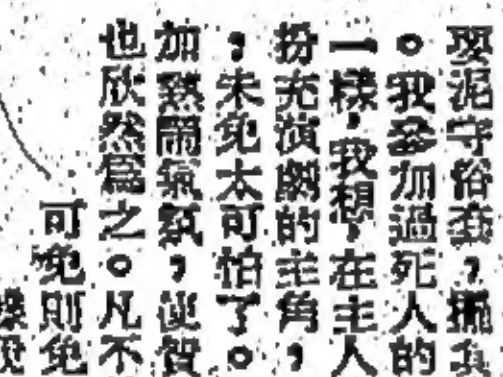 要泥守俗套,攜具
。我參加過死人的
一樣,我想,在主人
扮充演劇的主角,
,未免太可怕了。
加熱鬧氣氛,使賀
也欣然爲之。凡不
可免則免